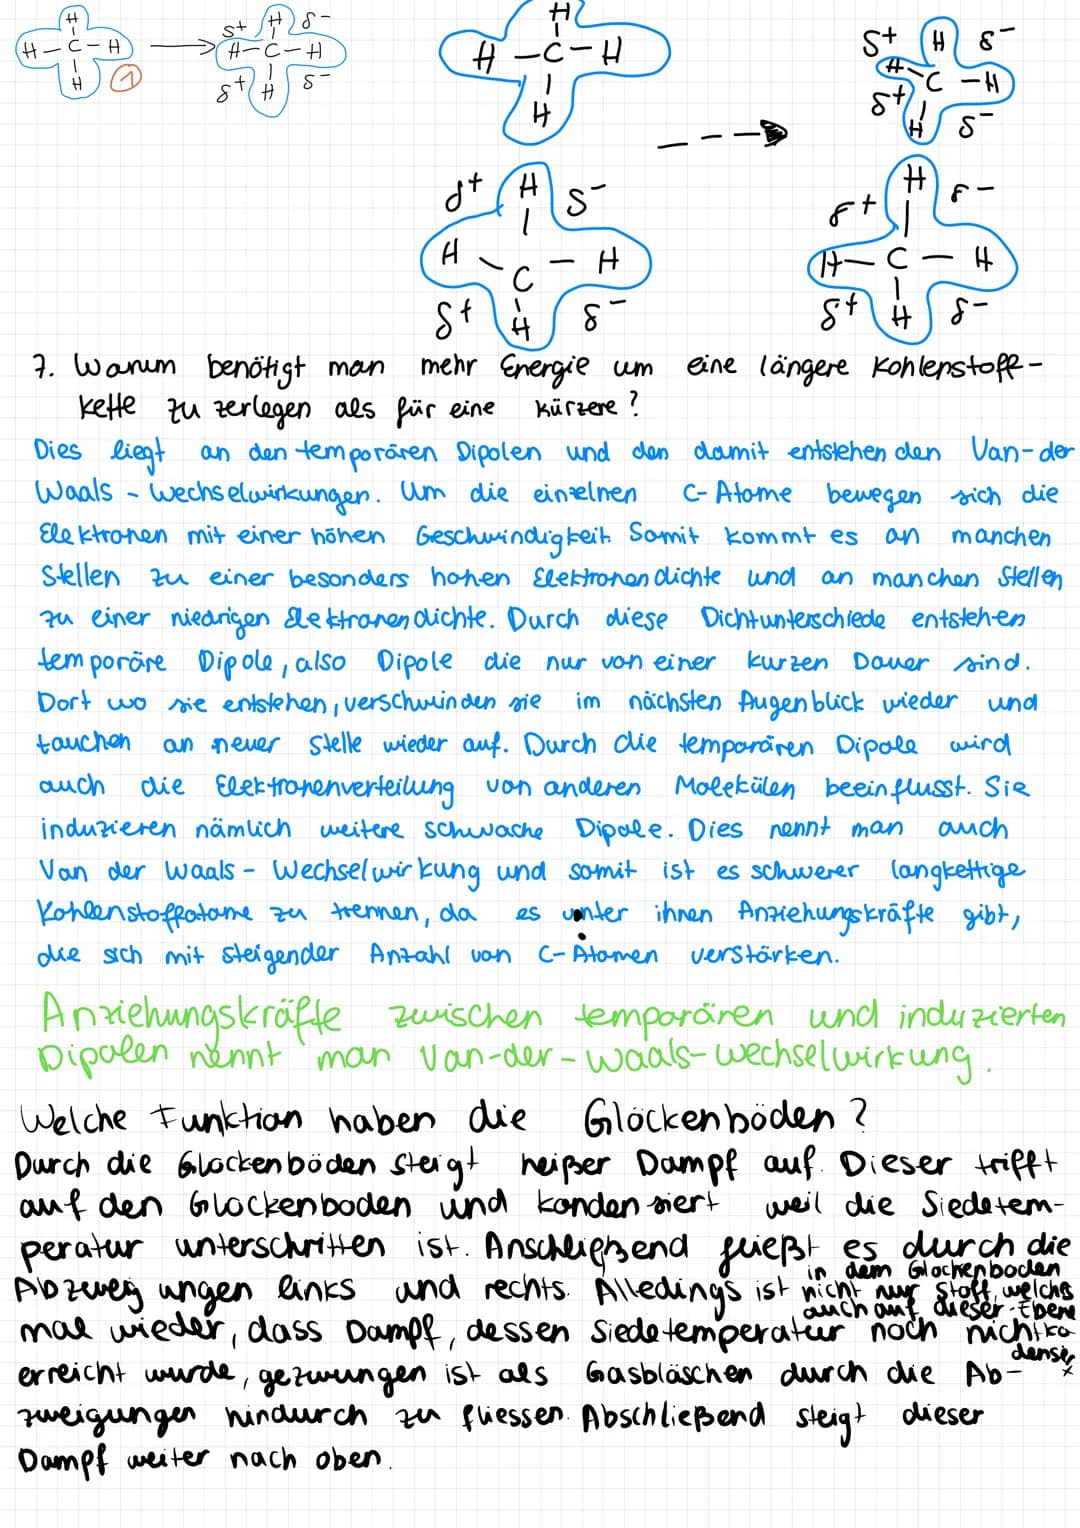 H
H - C - H
H
1
δ+ H δ-
H - C - H
δ+ H δ-
H
H - C - H
H
δ+ H δ-
H C - H
δ+ H δ-
δ+ H δ-
H C - H
δ+ H δ-
H δ-
δ+
H - C - H
δ+ H δ-
7. Warum benötigt man mehr Energie um eine längere Kohlenstoff-
kette zu zerlegen als für eine kürzere?
Dies liegt an den temporären Dipolen und den damit entstehenden Van-der
Waals - Wechselwirkungen. Um die einzelnen C-Atome bewegen sich die
Elektronen mit einer höhen Geschwindigkeit. Somit kommt es an manchen
Stellen zu einer besonders hohen Elektronendichte und an manchen Stellen
zu einer niedrigen Elektronendichte. Durch diese Dichtunterschiede entstehen
temporäre Dipole, also Dipole die nur von einer kurzen Dauer sind.
Dort wo sie entstehen, verschwinden sie im nächsten Augenblick wieder und
tauchen an neuer Stelle wieder auf. Durch die temporären Dipole wird
auch die Elektronenverteilung von anderen Molekülen beeinflusst. Sie
induzieren nämlich weitere schwache Dipole. Dies nennt man auch
Van der Waals - Wechselwirkung und somit ist es schwerer langkettige
Kohlenstoffatome zu trennen, da es unter ihnen Anziehungskräfte gibt,
die sich mit steigender Anzahl von C-Atomen verstärken.
Anziehungskräfte zwischen temporären und induzierten
Dipolen nennt man Van-der-Waals-Wechselwirkung.
Welche Funktion haben die Glöckenböden?
Durch die Glockenböden steigt heißer Dampf auf. Dieser trifft
auf den Glockenboden und kondensiert weil die Siedetem-
peratur unterschritten ist. Anschließend fließt es durch die
in dem Glockenboden
Abzweigungen links und rechts. Alledings ist nicht nur Stoff, welchs
auch auf dieser Ebene
mal wieder, dass Dampf, dessen Siedetemperatur noch nicht
erreicht wurde, gezwungen ist als Gasbläschen durch die Ab-
zweigungen hindurch zu fliessen. Abschließend steigt dieser
Dampf weiter nach oben.